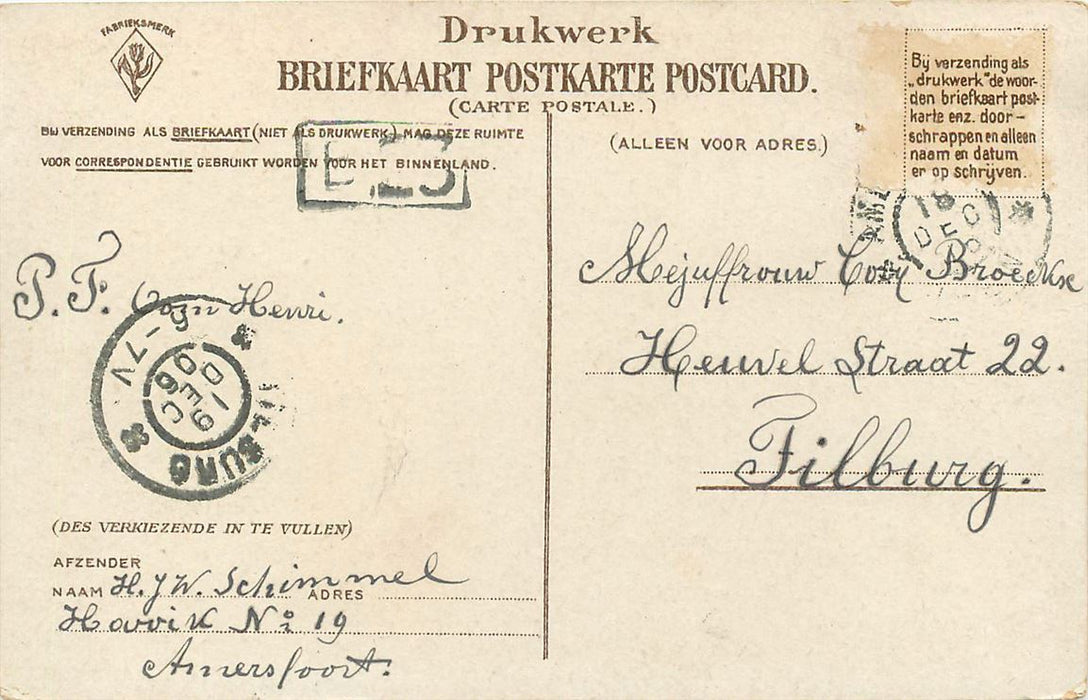 FABRIEKSMERK
Drukwerk
BRIEFKAART POSTKARTE POSTCARD.
(CARTE POSTALE.)
BIJ VERZENDING ALS BRIEFKAART (NIET ALS DRUKWERK) MAG DEZE RUIMTE
VOOR CORRESPONDENTIE GEBRUIKT WORDEN VOOR HET BINNENLAND.
(ALLEEN VOOR ADRES.)
Bij verzending als
„drukwerk" de woor-
den briefkaart post-
karte enz. door-
schrappen en alleen
naam en datum
er op schrijven.
18
DEC
P. F. Cozn Henri.
5-7V
19
DEC
06
TILBURG
Mejuffrouw Cozy Broeckse
Heuvel Straat 22.
Tilburg.
(DES VERKIEZENDE IN TE VULLEN)
AFZENDER
NAAM H. J W. Schimmel ADRES
Havik No 19
Amersfoort.